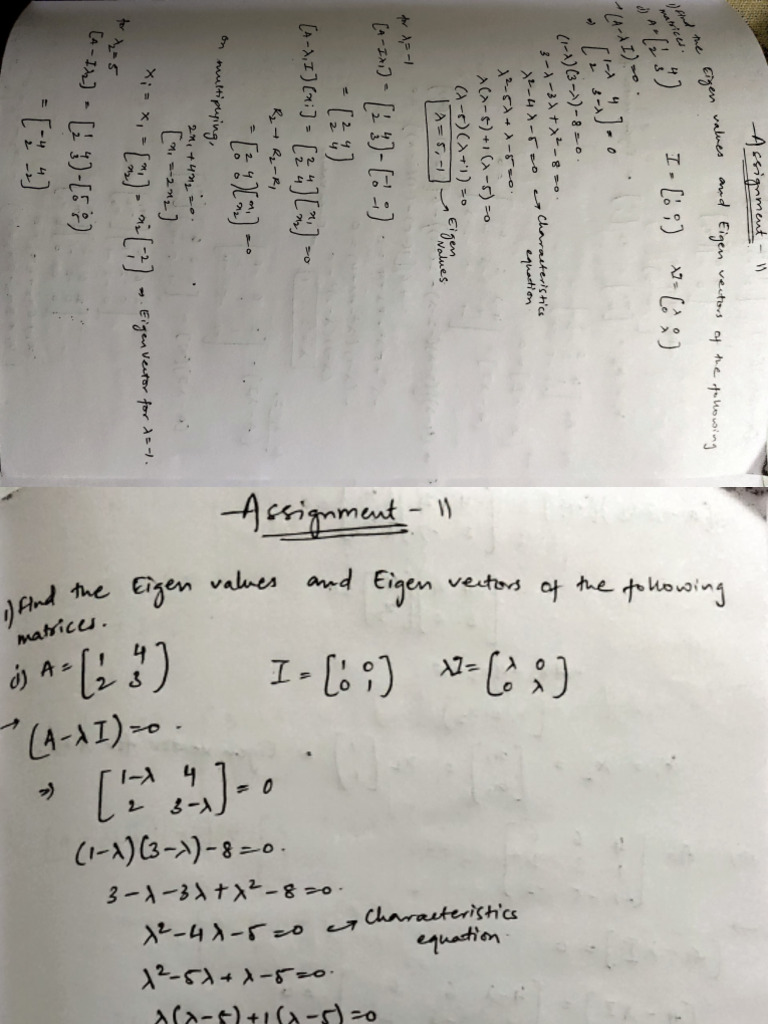 Assignment - 11
1) Find the Eigen values and Eigen vectors of the following
matrices.
i) A = [1 4 I = [1 0 λI = [λ 0
2 3] 0 1] 0 λ]
→ (A-λI)=0.
⇒ [1-λ 4
2 3-λ] = 0
(1-λ)(3-λ)-8=0.
3-λ-3λ+λ²-8=0.
λ²-4λ-5=0 → Characteristics
equation
λ²-5λ+λ-5=0.
λ(λ-5)+1(λ-5)=0
(λ-5)(λ+1)=0
λ=5,-1 → Eigen
values
for λ=-1
[A-Iλ₁] = [1 4 - [-1 0
2 3] 0 -1]
= [2 4
2 4]
[A-λ₁I][xᵢ] = [2 4 [x₁
2 4] x₂] =0
R₂→R₂-R₁
= [2 4 [x₁
0 0] x₂] =0
on multiplying,
2x₁+4x₂=0.
[x₁=-2x₂]
Xᵢ = X₁ = [x₁ = x₂ [-2
x₂] 1] ⇒ Eigen vector for λ=-1.
for λ₂=5
[A-Iλ₂] = [1 4 - [5 0
2 3] 0 5]
= [-4 4
2 -2]
Assignment - 11
1) Find the Eigen values and Eigen vectors of the following
matrices.
i) A = [1 4 I = [1 0 λI = [λ 0
2 3] 0 1] 0 λ]
→ (A-λI)=0.
⇒ [1-λ 4
2 3-λ] = 0
(1-λ)(3-λ)-8=0.
3-λ-3λ+λ²-8=0.
λ²-4λ-5=0 → Characteristics
equation.
λ²-5λ+λ-5=0.
λ(λ-5)+1(λ-5)=0